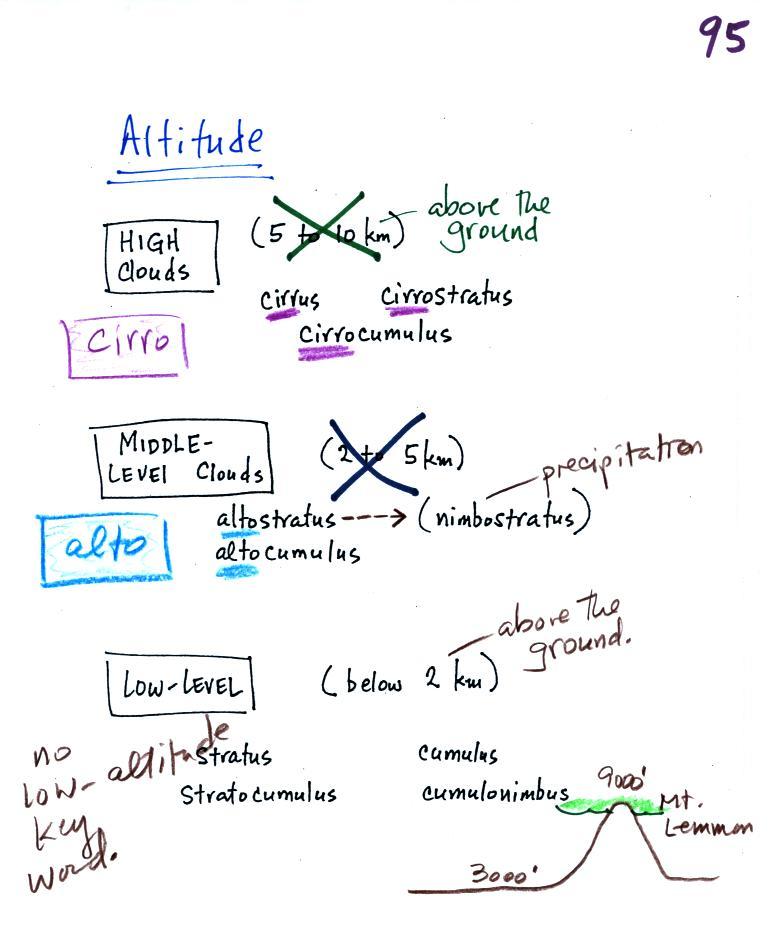 95
Altitude
HIGH
Clouds
(5 to 10 km)
above the
ground
cirrus
cirrostratus
cirrocumulus
cirro
MIDDLE-
LEVEL Clouds
(2 to 5 km)
precipitation
altostratus ---> (nimbostratus)
altocumulus
alto
LOW-LEVEL
(below 2 km)
above the
ground.
stratus
cumulus
Stratocumulus
cumulonimbus
no
low-altitude
key
word.
9000'
Mt.
Lemmon
3000'